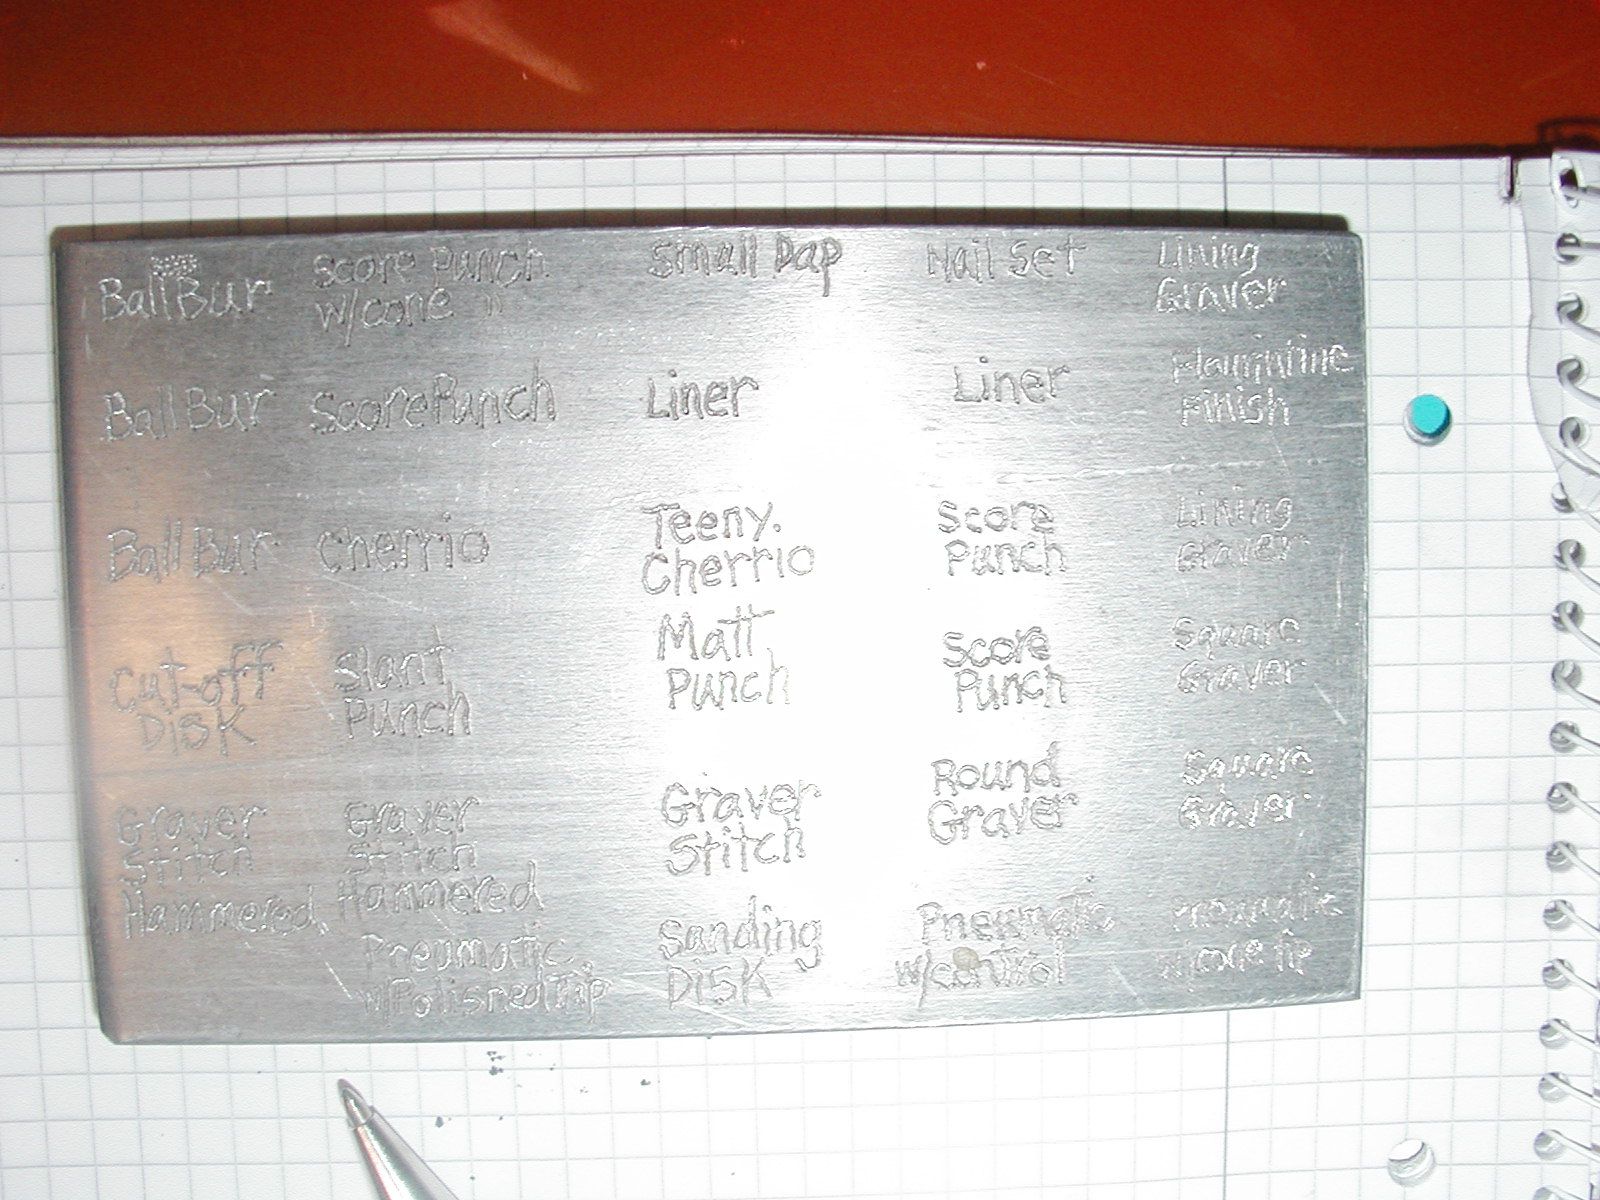 Ball Bur
Score Punch
w/cone "
Small Dap
Nail Set
Lining
Graver
Ball Bur
Score Punch
Liner
Liner
Finish
Ball Bur
Cherrio
Teeny
Cherrio
Score
Punch
Lining
Graver
Cut-off
Disk
Slant
Punch
Matt
Punch
Score
Punch
Square
Graver
Graver
Stitch
Hammered
Graver
Stitch
Hammered
Graver
Stitch
Round
Graver
Square
Graver
Pneumatic
w/Polished Tip
Sanding
Disk
Pneumatic
w/control
Pneumatic
w/cone tip